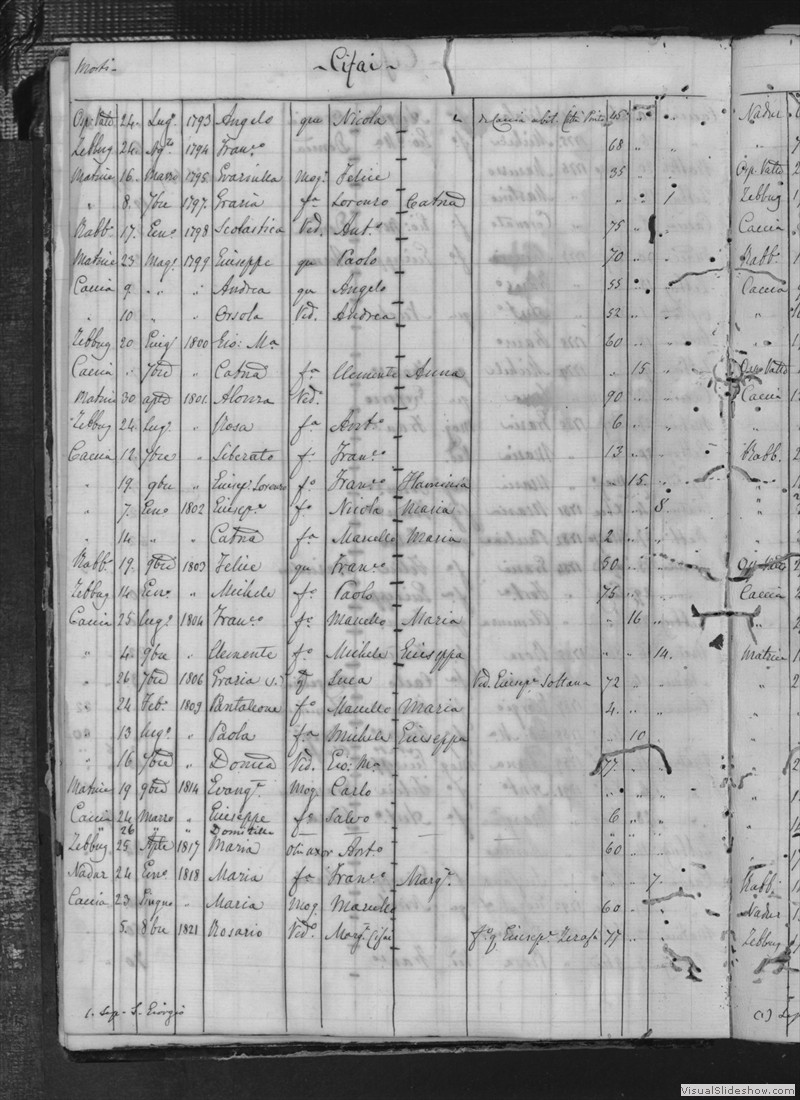 Morti-
- Cifai -
24. Lug. 1793 Angelo qu Nicola 45
Zebbug 24. Ag.to 1794 Fran.co 68
Matrice 16. Marzo 1795 mog. Felice 35
" 8. 7bre 1797. Grazia f.a Lorenzo Catna
Rabb.o 17. Eno. 1798 Scolastica Ved. Ant.o 75
Matrice 23 Mag. 1799 Giuseppe qu Paolo 70
Caccia 9 " " Andrea qu Angelo 55
" 10 " " Orsola Ved. Andrea 52
Zebbug 20 Giug. 1800 Gio: Ma 60
Caccia . 7bre " Catna f.a Clemente Anna " 15
Matrice 30 aple 1801. Alonza Ved. 90
Zebbug 24. lug. " Rosa f.a Ant.o 6
Caccia 12. 7bre " Liberato f.o Fran.co 13
" 19. 9bre " Giusep. Lorenzo f.o Fran.co Flaminia " 15.
" 7. Eno. 1802 Giusep.e f.o Nicola Maria 8
" 14 " " Catna f.a Marcello Maria 2
Rabb.o 19. 9bre 1803 Felice qu Fran.co 50
Zebbug 14 Eno. " Michele f.o Paolo 75
Caccia 25 lug. 1804 Fran.co f.o Marcello Maria " 16
" 4. 9bre " Clemente f.o Michele Giuseppa " " 14.
" 26 7bre 1806 Grazia (1) Luca Ved. Giusep.e Soltana 72
" 24 Feb. 1809 Pantaleone f.o Marcello Maria 4.
" 13 lug. " Paola f.a Michele Giuseppa " 10
" 16 7bre " Domca Ved. Gio: Ma 77
Matrice 19 9bre 1814 Evang.ta Mog. Carlo
Caccia 24 Marzo " Giuseppe f.o Salvo 6
26 " Domitilla
Zebbug 25 Aple 1817 Maria olim uxor Ant.o 60
Nadur 24 Eno. 1818 Maria f.a Fran.co Marg.ta 7.
Caccia 23 Giugno " Maria Mog. Marcello 60
5. 8bre 1821 Rosario Ved.o Marg.ta Cifai f.o q Giusep.e 77
1. Sep. S. Giorgio
Nadur
Zebbug
Caccia
Rabb.
Caccia
Caccia
Rabb.
Caccia
Matrice
Rabb.
Nadur
Zebbug
VisualSlideshow.com